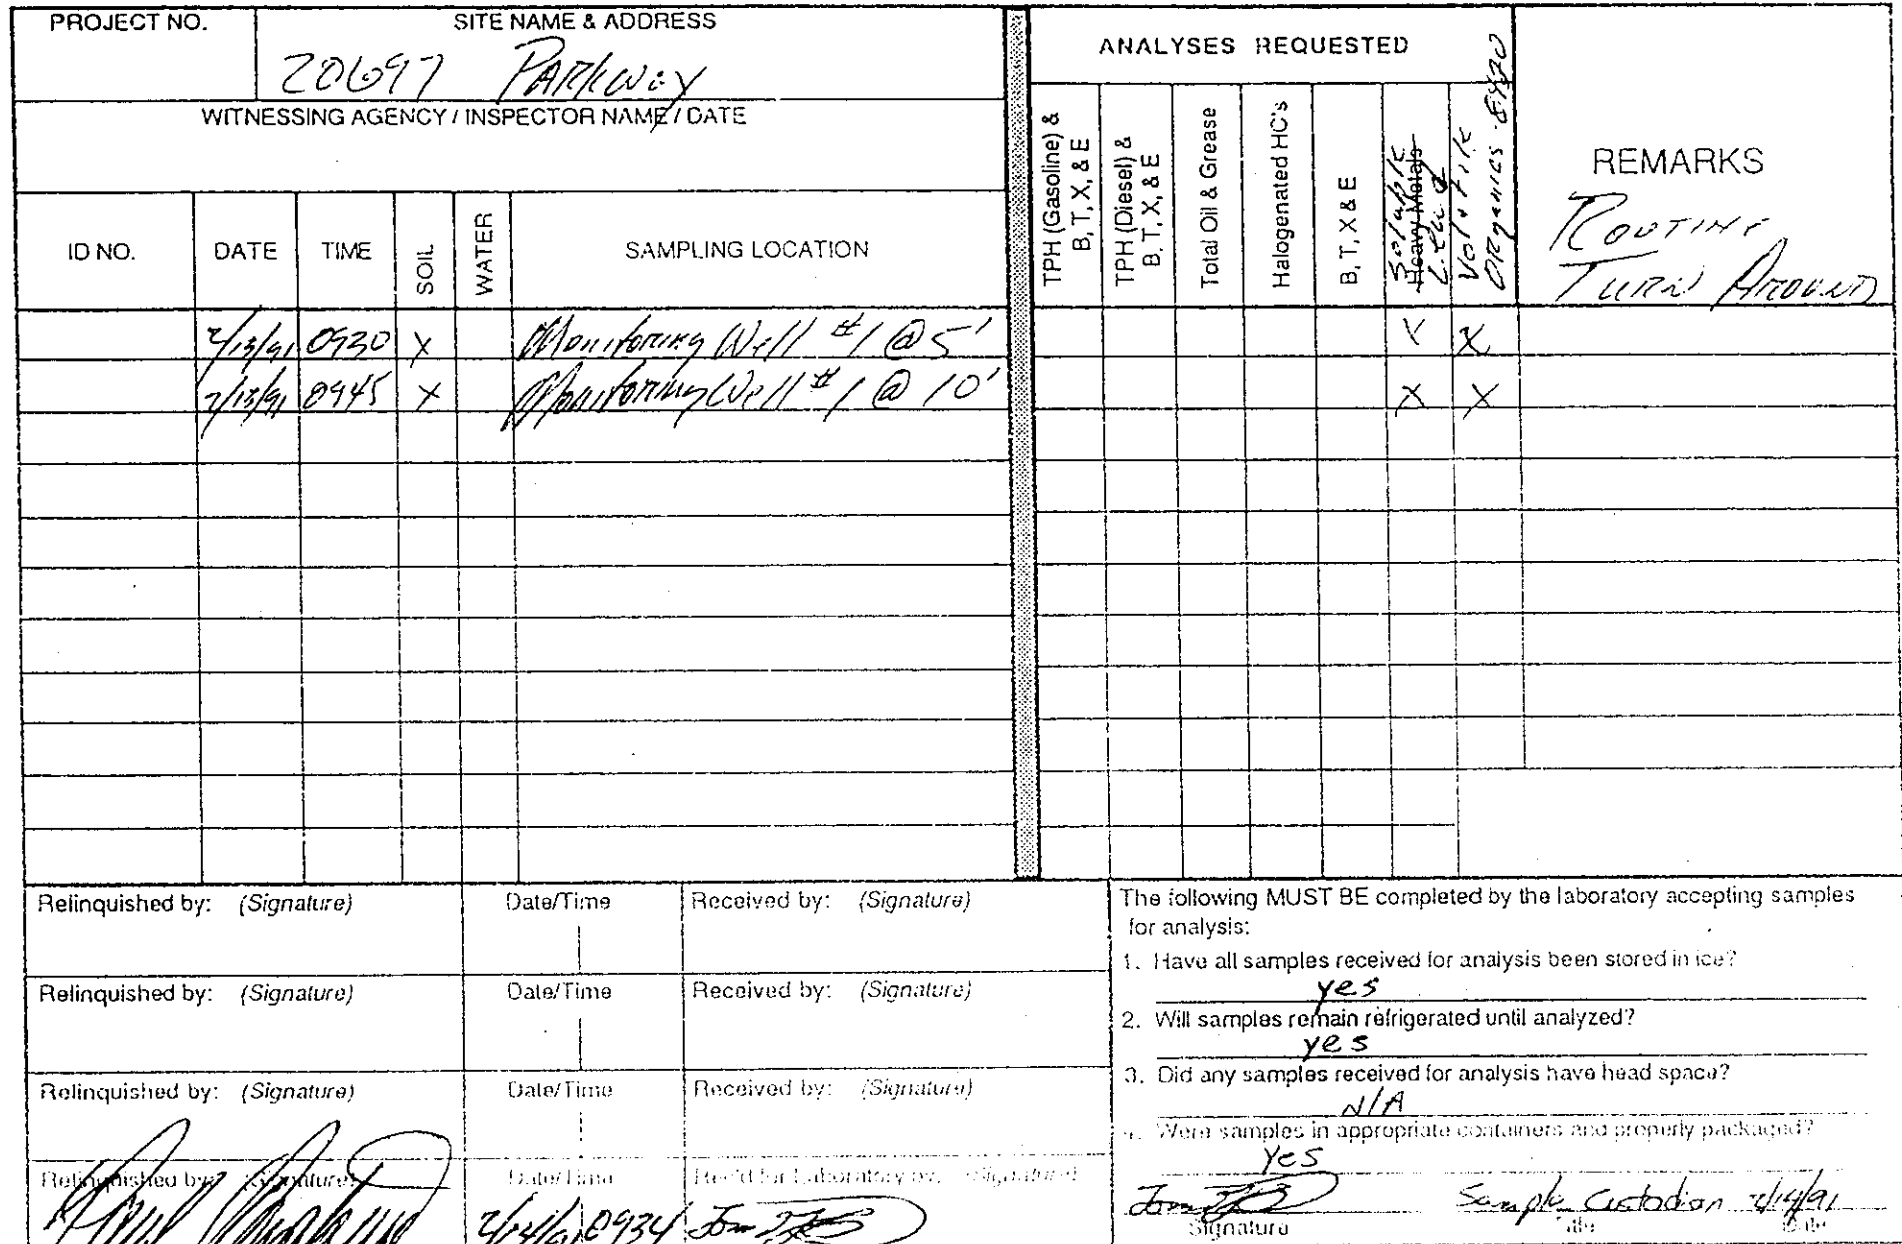 PROJECT NO.
SITE NAME & ADDRESS
20697 PARKWAY
WITNESSING AGENCY / INSPECTOR NAME / DATE
ANALYSES REQUESTED
ID NO.
DATE
TIME
SOIL
WATER
SAMPLING LOCATION
TPH (Gasoline) & B, T, X, & E
TPH (Diesel) & B, T, X, & E
Total Oil & Grease
Halogenated HC's
B, T, X & E
Heavy Metals
Soluble Lead
Volatile Organics
REMARKS
ROUTINE
TURN AROUND
2/13/91 0930 X Monitoring Well #1 @ 5' X X
2/13/91 0945 X Monitoring Well #1 @ 10' X X
Relinquished by: (Signature) Date/Time Received by: (Signature)
Relinquished by: (Signature) Date/Time Received by: (Signature)
Relinquished by: (Signature) Date/Time Received by: (Signature)
Relinquished by: (Signature) Date/Time Rec'd for Laboratory by: (Signature)
2/14/91 0934
The following MUST BE completed by the laboratory accepting samples
for analysis:
1. Have all samples received for analysis been stored in ice?
yes
2. Will samples remain refrigerated until analyzed?
yes
3. Did any samples received for analysis have head space?
N/A
4. Were samples in appropriate containers and properly packaged?
Yes
Sample Custodian 2/14/91
Signature Title Date